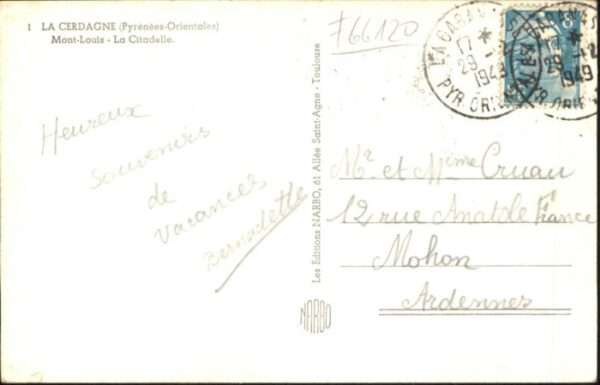 1 LA CERDAGNE (Pyrénées-Orientales)
Mont-Louis - La Citadelle.
F66120
LA CABANASSE
17 *
29 - 12
1949
PYR. ORIENTALES
Heureux
souvenirs
de
vacances
Bernadette
Les Editions NARBO, 61 Allée Saint-Agne - Toulouse
NARBO
Mr et Mme Cruau
12 rue Anatole France
Mohon
Ardennes